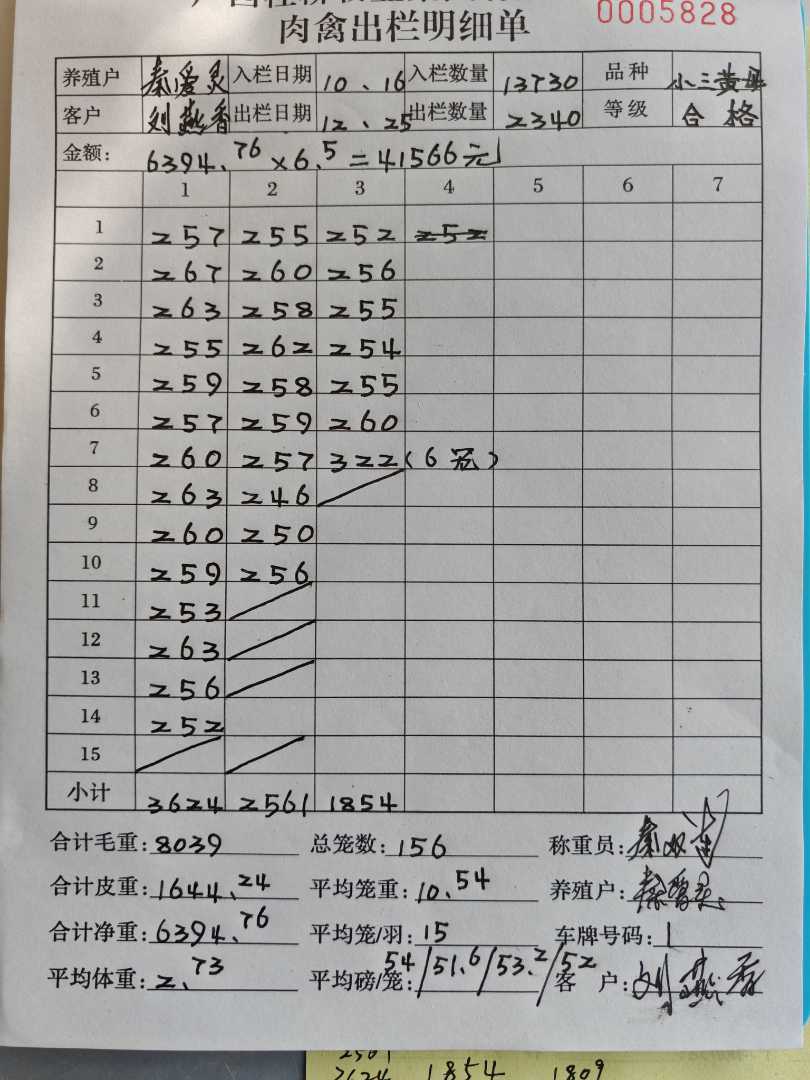 0005828
肉禽出栏明细单
养殖户 秦爱灵 入栏日期 10、16 入栏数量 13730 品种 小三黄
客户 刘燕香 出栏日期 12、25 出栏数量 2340 等级 合格
金额: 6394.76×6.5=41566元
1 2 3 4 5 6 7
1 257 255 252 252
2 267 260 256
3 263 258 255
4 255 262 254
5 259 258 255
6 257 259 260
7 260 257 322(6冠)
8 263 246
9 260 250
10 259 256
11 253
12 263
13 256
14 252
15
小计 3624 2561 1854
合计毛重: 8039 总笼数: 156 称重员: 秦
合计皮重: 1644.24 平均笼重: 10.54 养殖户: 秦爱灵
合计净重: 6394.76 平均笼/羽: 15 车牌号码: 1
平均体重: 2.73 平均磅/笼: 54/51.6/53.2/52 客户: 刘燕香
2561
3624 1854 1809